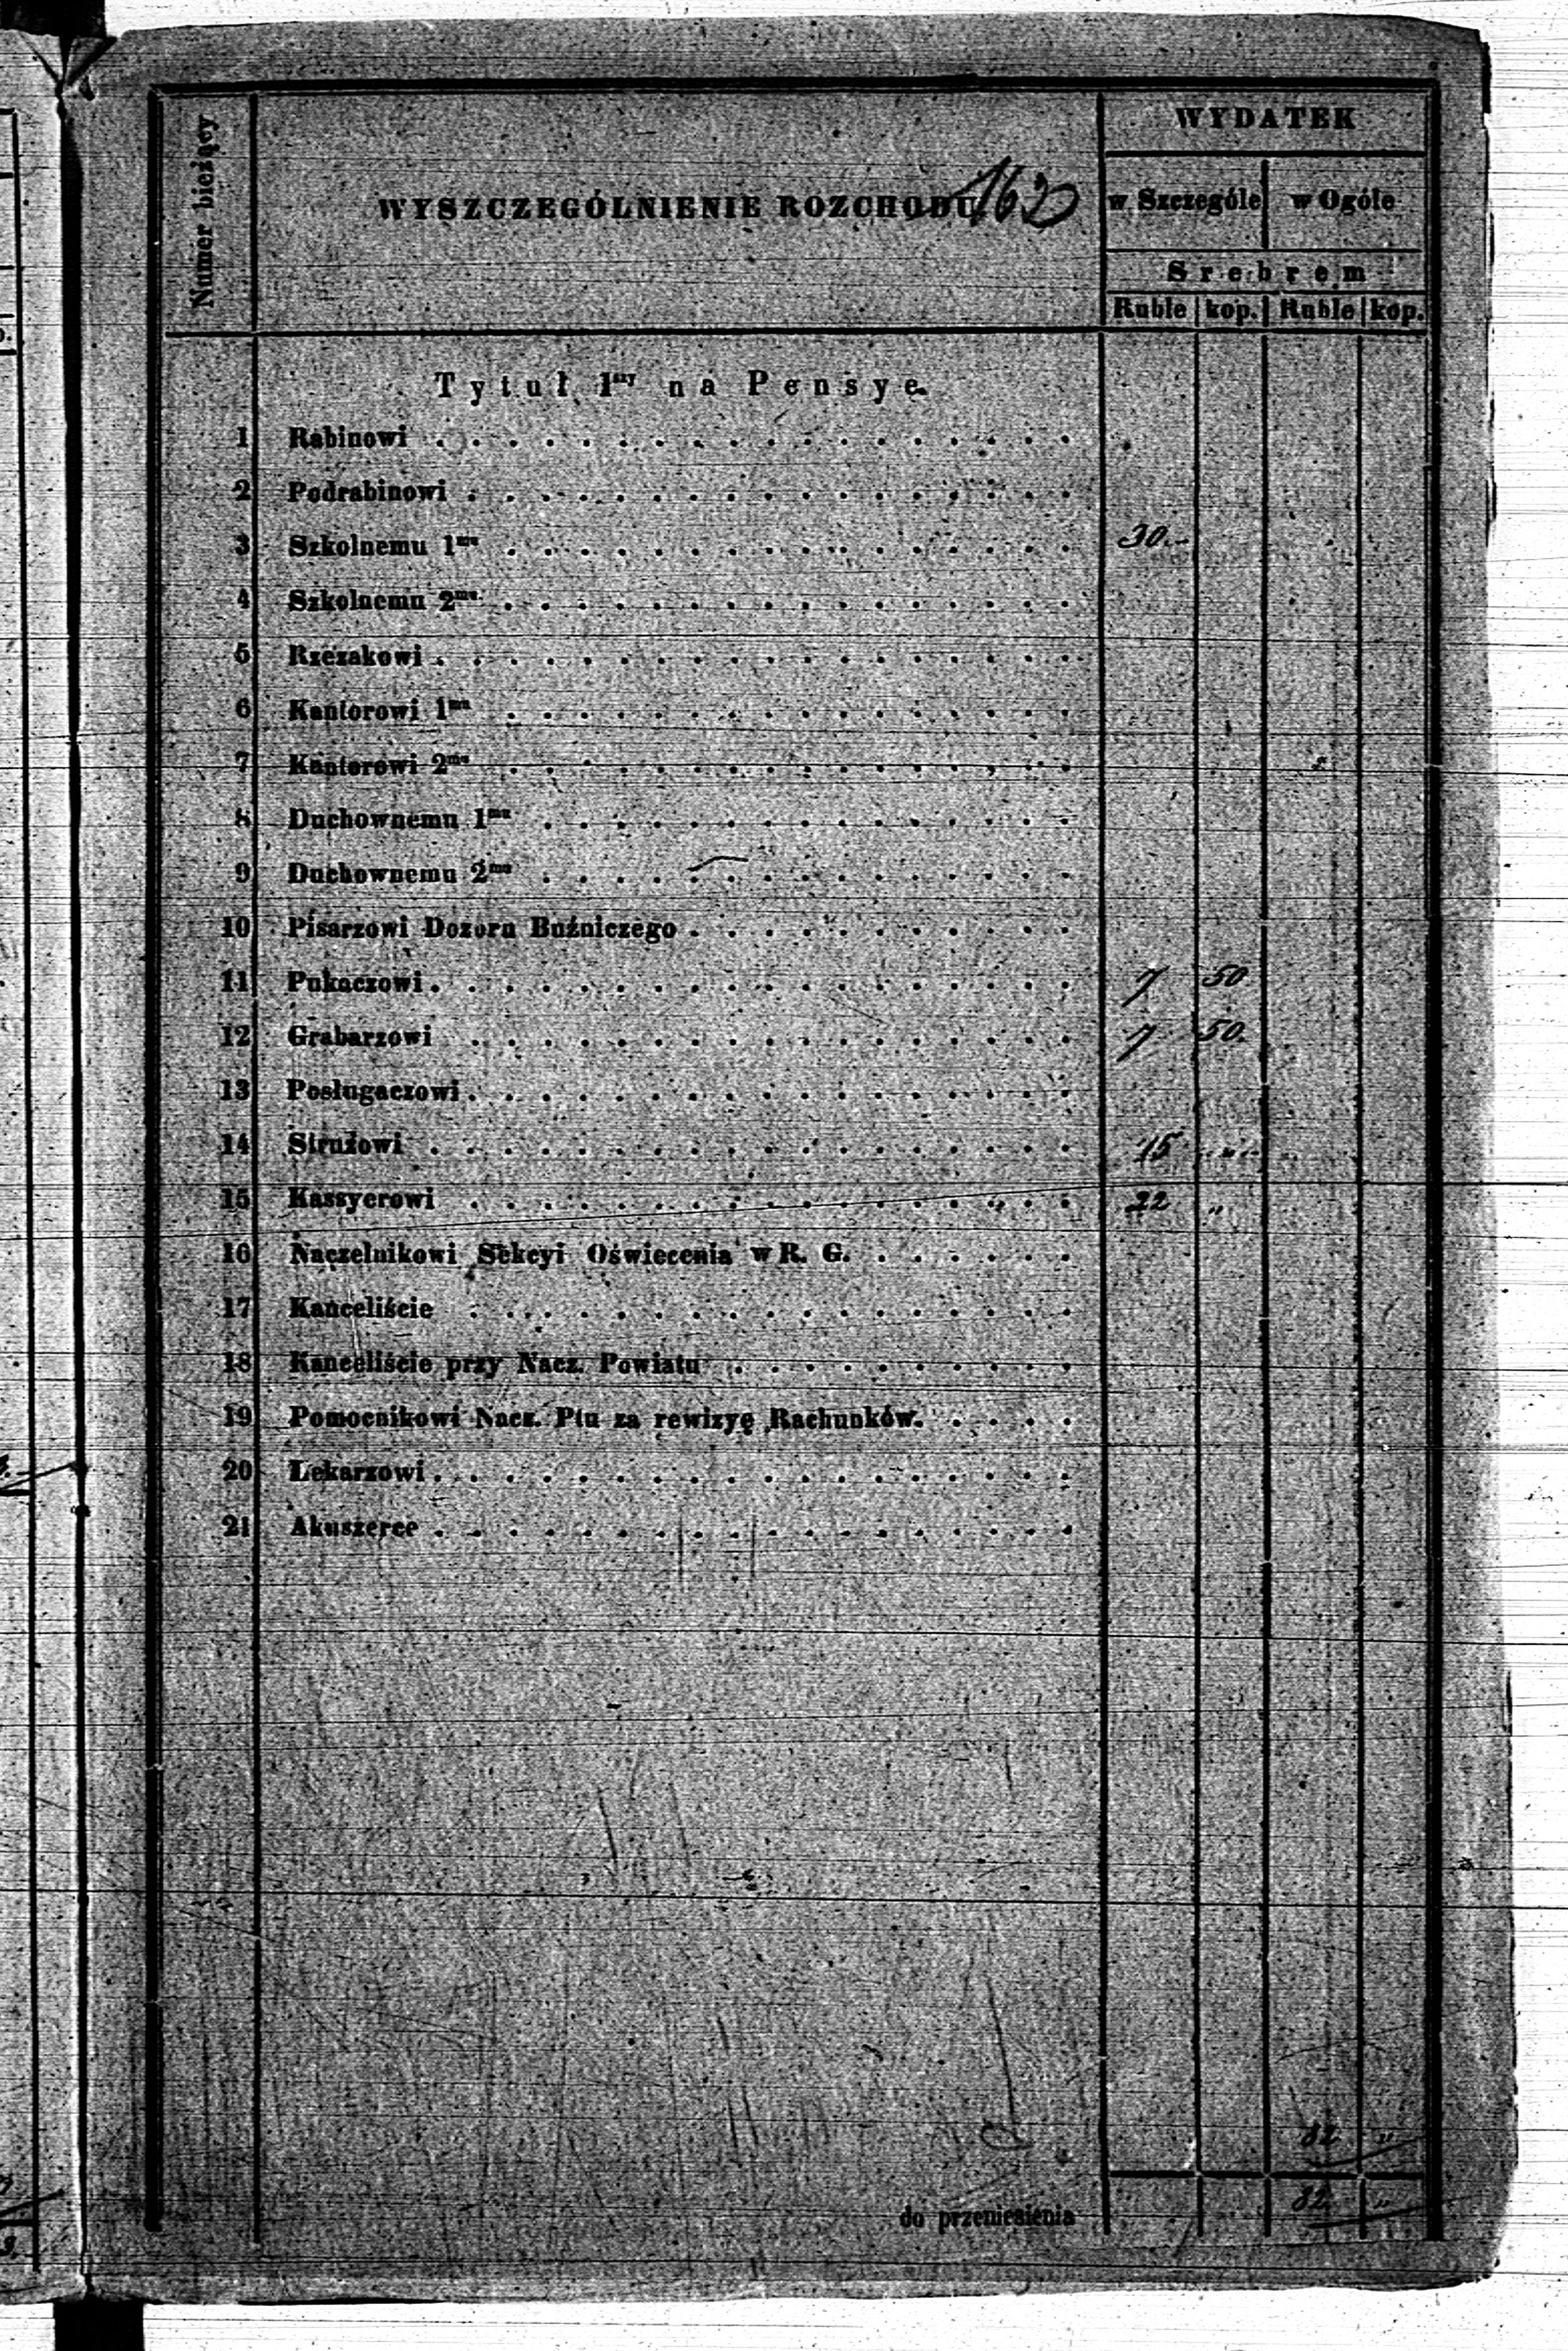 Numer bieżący
WYSZCZEGÓLNIENIE ROZCHODU
WYDATEK
w Szczególe w Ogóle
Srebrem
Ruble kop. Ruble kop.
Tytuł Iszy na Pensye.
1 Rabinowi
2 Podrabinowi
3 Szkolnemu 1mu 30.-
4 Szkolnemu 2mu
5 Rzezakowi
6 Kantorowi 1mu
7 Kantorowi 2mu
8 Duchownemu 1mu
9 Duchownemu 2mu
10 Pisarzowi Dozoru Buźniczego
11 Pukaczowi 7 50
12 Grabarzowi 7 50.
13 Posługaczowi
14 Stružowi 15 "
15 Kassyerowi 22 "
16 Naczelnikowi Sekcyi Oświecenia w R. G.
17 Kanceliście
18 Kanceliście przy Nacz. Powiatu
19 Pomocnikowi Nacz. Ptu za rewizyę Rachunków.
20 Lekarzowi
21 Akuszerce
82 "
do przeniesienia 82 "